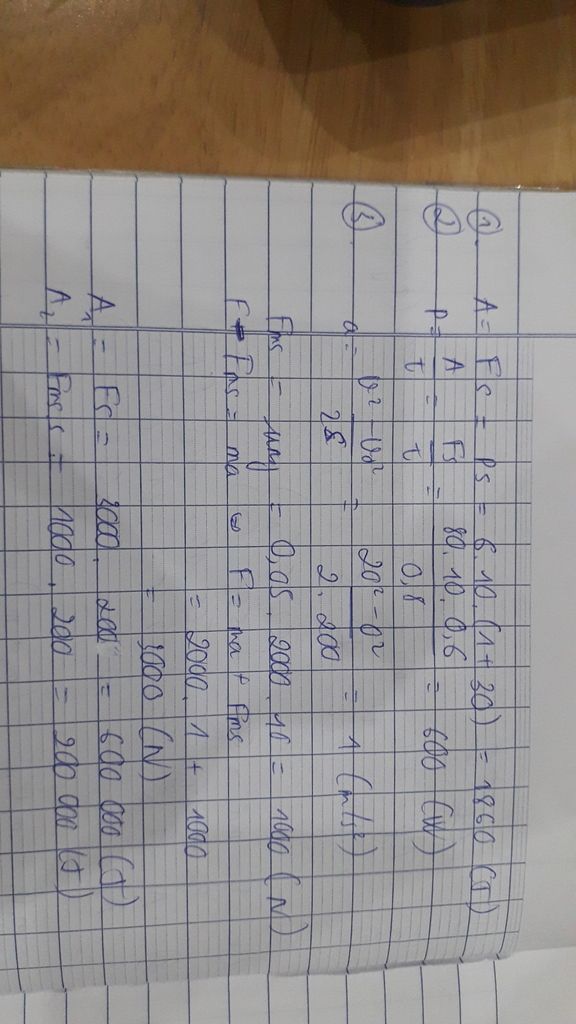 ① A = Fs = Ps = 6.10.(1+30) = 1860 (J)
② P = A/t = Fs/t = 80.10.0,6/0,8 = 600 (W)
③ a = v² - v₀²/2s = 20² - 0²/2.200 = 1 (m/s²)
Fms = μmg = 0,05.2000.10 = 1000 (N)
F - Fms = ma ⇔ F = ma + Fms
= 2000.1 + 1000
= 3000 (N)
A₁ = Fs = 3000.200 = 600 000 (J)
A₂ = Fms s = 1000.200 = 200 000 (J)